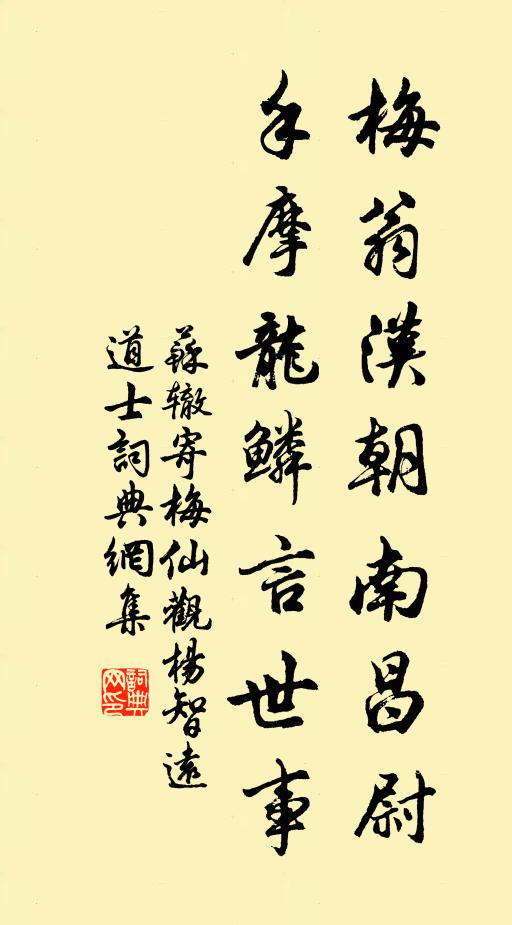 梅翁漢朝南昌尉
手摩龍鱗言世事
蘇辙寄梅仙觀楊智遠
道士詞典網集
詞典网印